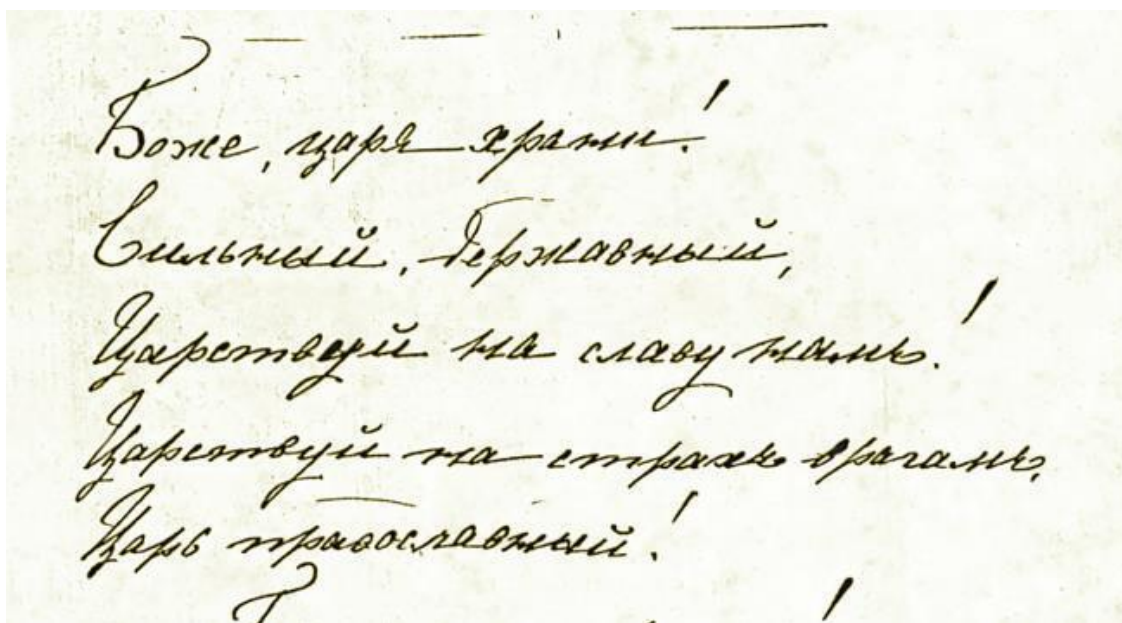 Боже, царя храни!
Сильный, державный,
Царствуй на славу намъ!
Царствуй на страхъ врагамъ,
Царь православный!